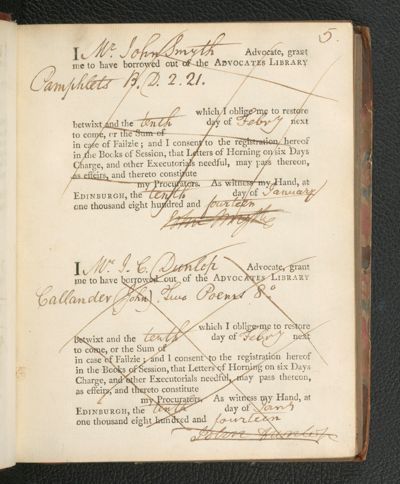 5.
I, Mr John Smyth Advocate, grant
me to have borrowed out of the ADVOCATES LIBRARY
Pamphlets B. D. 2. 21.
which I oblige me to restore
betwixt and the tenth day of Febry next
to come, or the Sum of
in case of Failzie; and I consent to the registration hereof
in the Books of Session, that Letters of Horning on six Days
Charge, and other Executorials needful, may pass thereon,
as effeirs, and thereto constitute
my Procurators. As witness my Hand, at
EDINBURGH, the tenth day of January
one thousand eight hundred and fourteen
John Smythe
I, Mr J. C. Dunlop Advocate, grant
me to have borrowed out of the ADVOCATES LIBRARY
Callander (John) Two Poems 8o
which I oblige me to restore
betwixt and the tenth day of Febry next
to come, or the Sum of
in case of Failzie; and I consent to the registration hereof
in the Books of Session, that Letters of Horning on six Days
Charge, and other Executorials needful, may pass thereon,
as effeirs, and thereto constitute
my Procurators. As witness my Hand, at
EDINBURGH, the tenth day of Jany
one thousand eight hundred and fourteen
John Dunlop